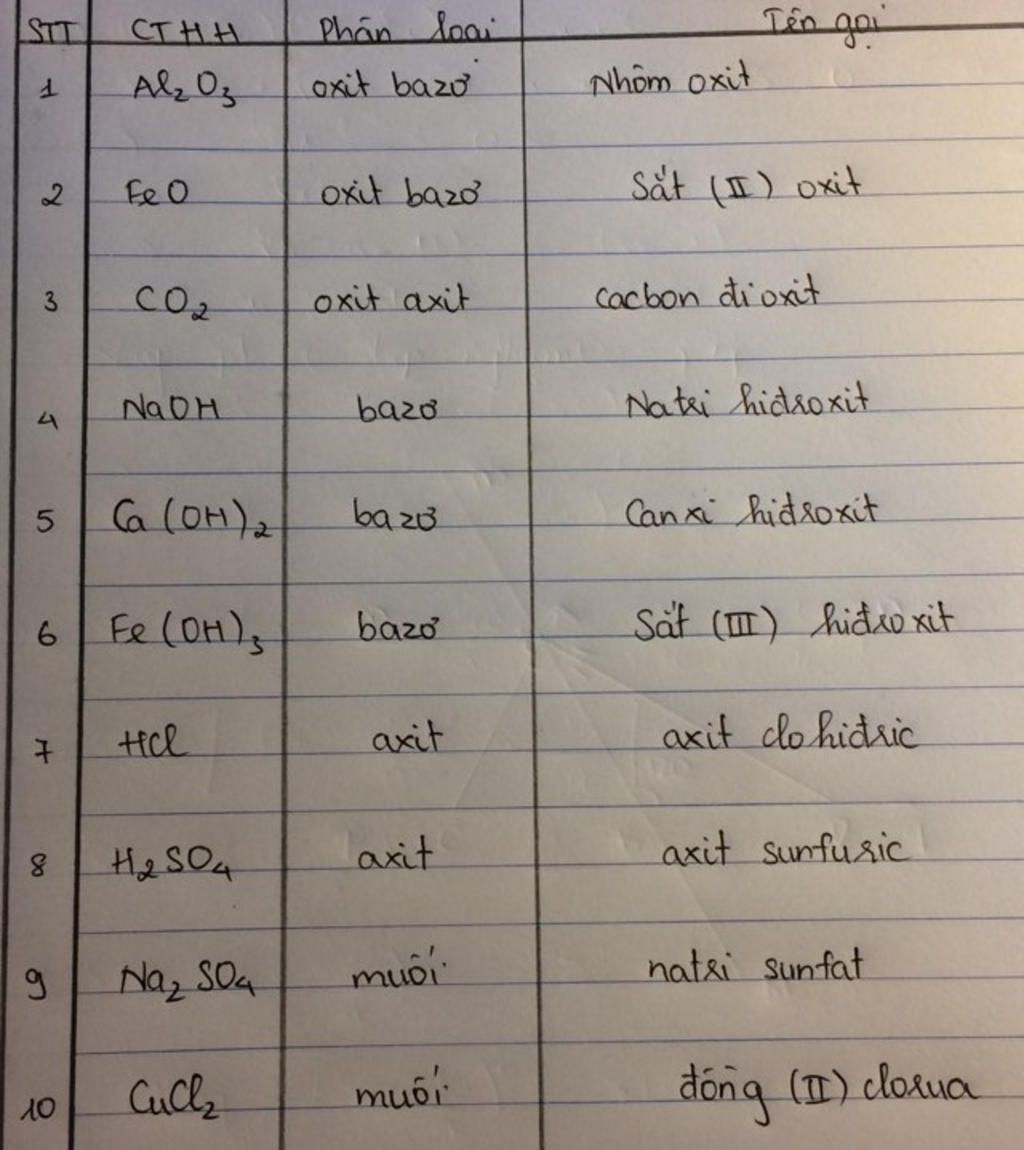 STT CTHH Phân loại Tên gọi
1 Al₂O₃ oxit bazơ Nhôm oxit
2 FeO oxit bazơ Sắt (II) oxit
3 CO₂ oxit axit cacbon đioxit
4 NaOH bazơ Natri hiđroxit
5 Ca(OH)₂ bazơ Canxi hiđroxit
6 Fe(OH)₃ bazơ Sắt (III) hiđroxit
7 HCl axit axit clohiđric
8 H₂SO₄ axit axit sunfuric
9 Na₂SO₄ muối natri sunfat
10 CuCl₂ muối đồng (II) clorua